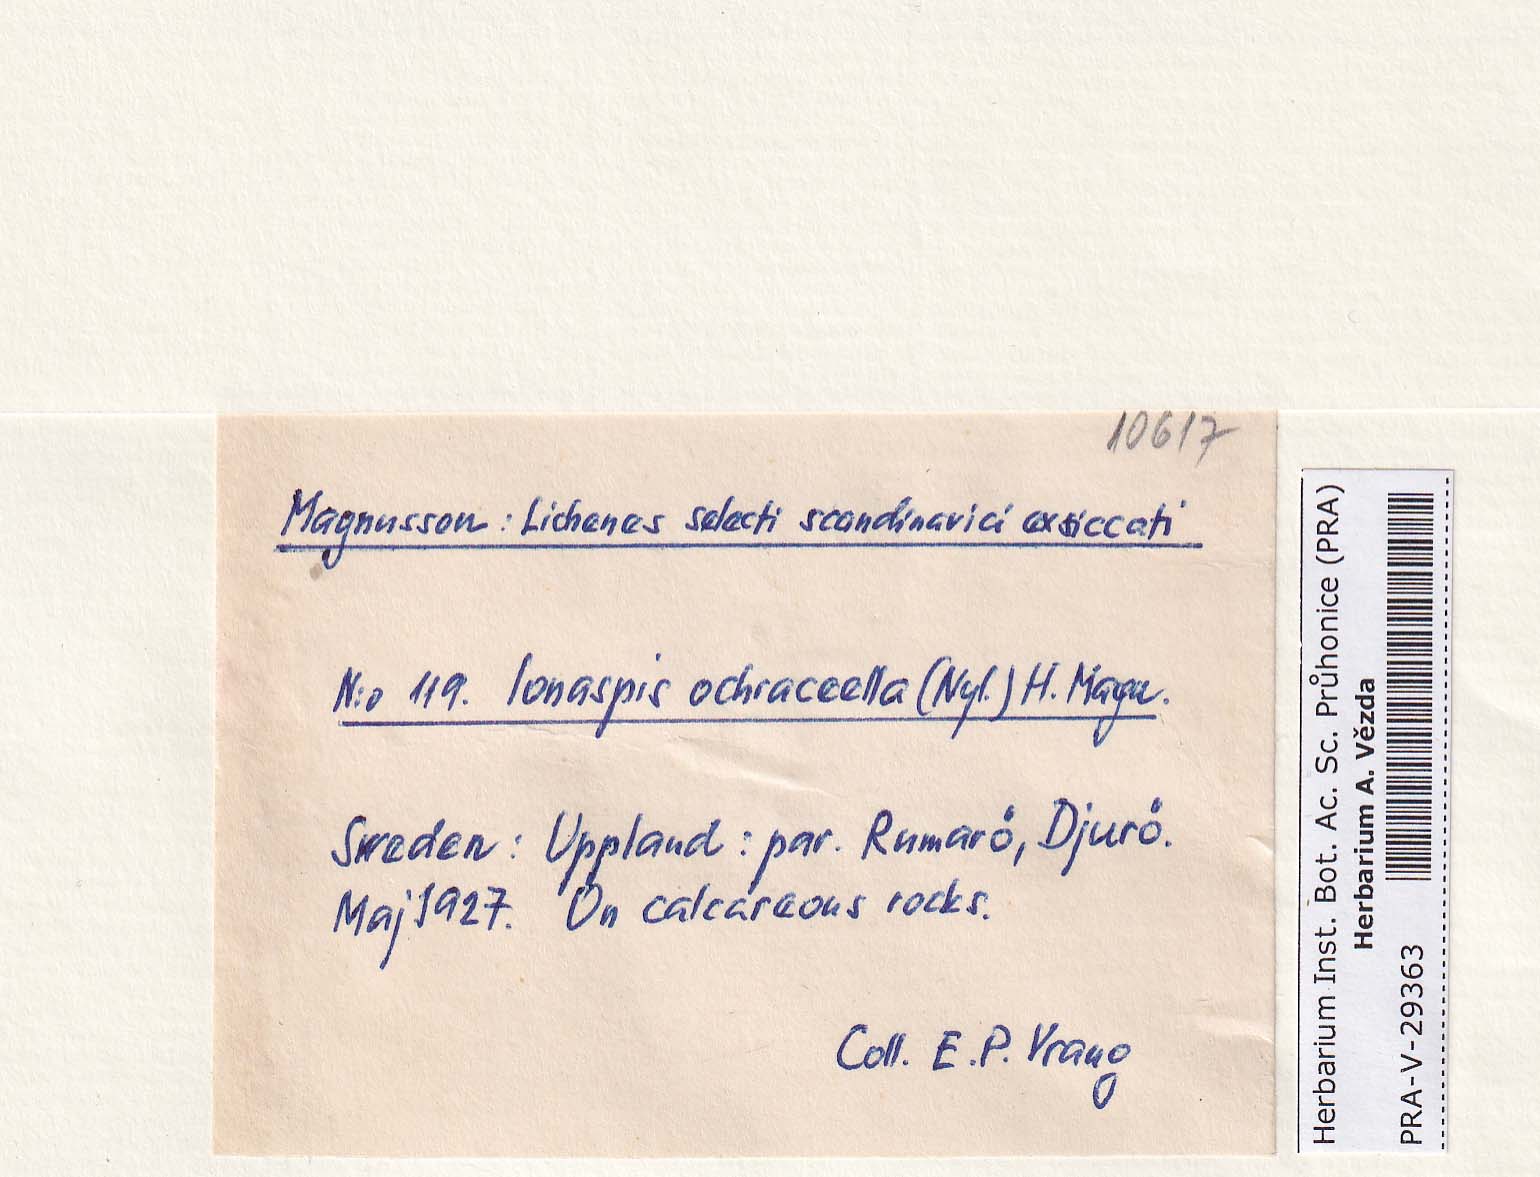 10617
Magnusson: Lichenes selecti scandinavici exsiccati
N:o 119. Ionaspis ochraceella (Nyl.) H. Magn.
Sweden: Uppland: par. Rumarö, Djurö.
Maj 1927. On calcareous rocks.
Coll. E. P. Vrang
Herbarium Inst. Bot. Ac. Sc. Průhonice (PRA)
Herbarium A. Vězda
PRA-V-29363